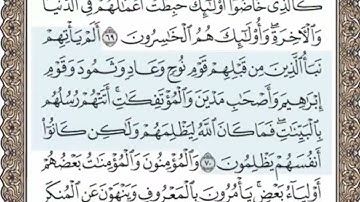 كَالَّذِي خَاضُوا أُولَٰئِكَ حَبِطَتْ أَعْمَالُهُمْ فِي الدُّنْيَا
وَالْآخِرَةِ وَأُولَٰئِكَ هُمُ الْخَاسِرُونَ ٦٩ أَلَمْ يَأْتِهِمْ
نَبَأُ الَّذِينَ مِن قَبْلِهِمْ قَوْمِ نُوحٍ وَعَادٍ وَثَمُودَ وَقَوْمِ
إِبْرَاهِيمَ وَأَصْحَابِ مَدْيَنَ وَالْمُؤْتَفِكَاتِ أَتَتْهُمْ رُسُلُهُم
بِالْبَيِّنَاتِ فَمَا كَانَ اللَّهُ لِيَظْلِمَهُمْ وَلَٰكِن كَانُوا
أَنفُسَهُمْ يَظْلِمُونَ ٧٠ وَالْمُؤْمِنُونَ وَالْمُؤْمِنَاتُ بَعْضُهُمْ
أَوْلِيَاءُ بَعْضٍ يَأْمُرُونَ بِالْمَعْرُوفِ وَيَنْهَوْنَ عَنِ الْمُنكَرِ